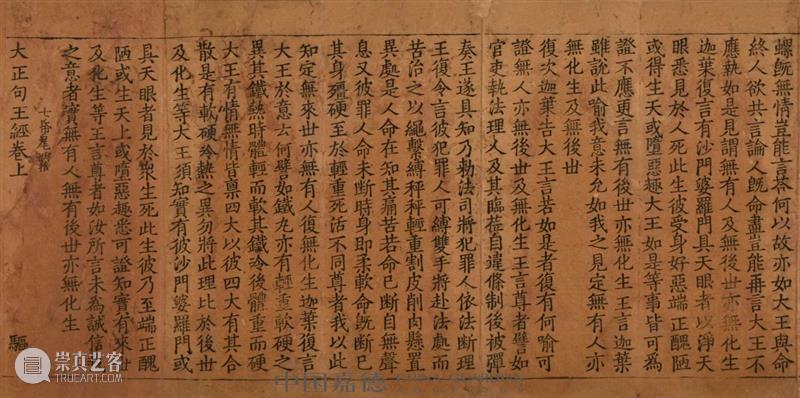 螺既無情豈能言荅何以故亦如大王與命
終人欲共言論人既命盡豈能再言大王不
應執如是見謂無有人及無後世亦無化生
迦葉復言有沙門婆羅門具天眼者以淨天
眼悉見於人死此生彼受身好惡端正醜陋
或得生天或墮惡趣大王如是等事皆可為
證不應更言無有後世亦無化生王言迦葉
雖說此喻我意未允如我之見定無有人亦
無化生及無後世
復次迦葉告大王言若如是者復有何喻可
證無人亦無後世及無化生王言尊者譬如
官吏執法理人及其臨莅自違條制後被彈
奏王遂具知乃勑法司將犯罪人依法斷理
王復令言彼犯罪人可縛雙手將赴法處而
苦治之以繩繫縛秤秤輕重割皮削肉懸置
異處是人命在知其痛苦苦命已斷自無聲
息又彼罪人命未斷時身即柔軟命既斷已
其身殭硬至於輕重死活不同尊者我以此
知定無來世亦無有人復無化生迦葉復言
大王於意云何譬如鐵丸亦有輕重軟硬之
異其鐵熱時體輕而軟其鐵冷後體重而硬
大王有情無情皆稟四大以彼四大有其合
散是有軟硬冷熱之異勿將此理比於後世
及化生等大王須知實有彼沙門婆羅門或
具天眼者見於衆生死此生彼乃至端正醜
陋或生天上或墮惡趣悉可證知實有來世
及化生等王言尊者如汝所言未為誠信我
之意者實無有人無有後世亦無化生
七帋
大正句王經卷上 驅
崇真艺客
中国嘉德